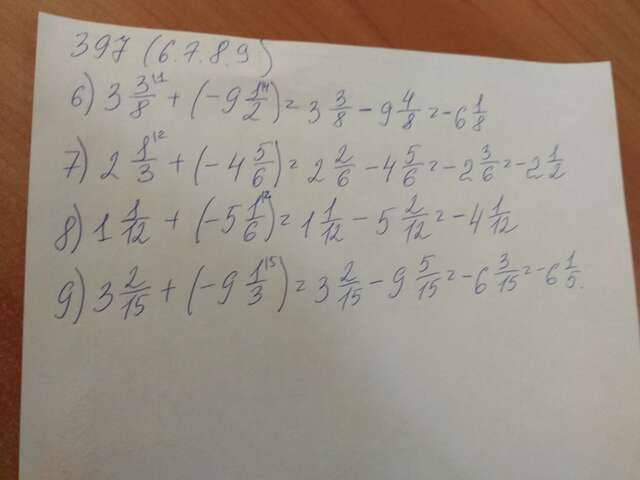 397 (6.7.8.9)
6) 3 3/8 \1 + (-9 1/2 \4) = 3 3/8 - 9 4/8 = -6 1/8
7) 2 1/3 \2 + (-4 5/6) = 2 2/6 - 4 5/6 = -2 3/6 = -2 1/2
8) 1 1/12 + (-5 1/6 \2) = 1 1/12 - 5 2/12 = -4 1/12
9) 3 2/15 + (-9 1/3 \5) = 3 2/15 - 9 5/15 = -6 3/15 = -6 1/5.